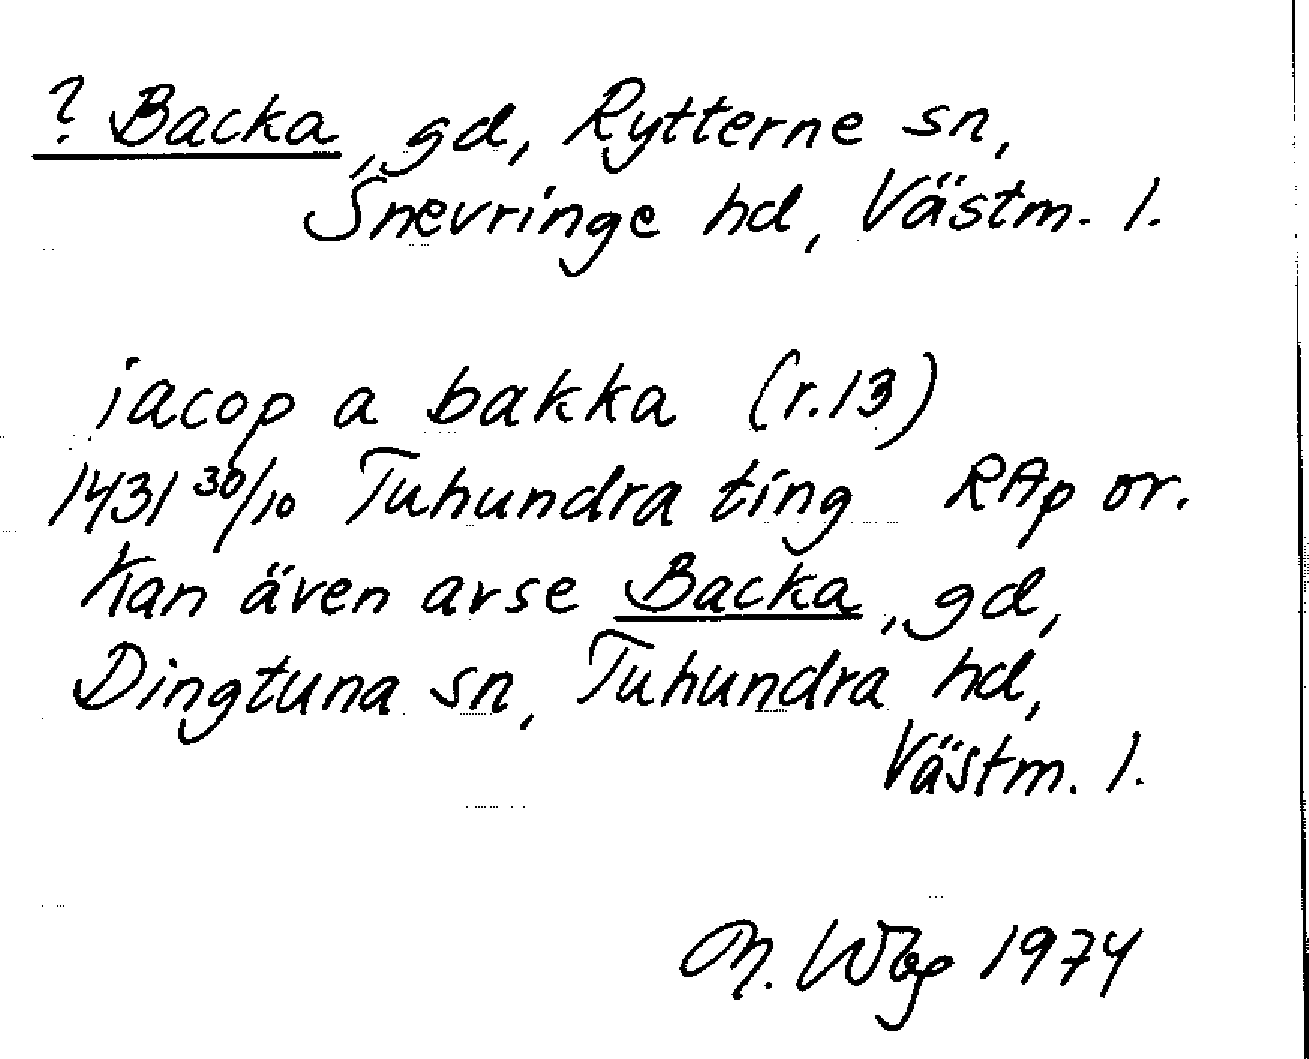 ? Backa, gd, Rytterne sn,
Snevringe hd, Västm. l.
iacop a bakka (r.13)
1431 30/10 Tuhundra ting RAp or.
Kan även avse Backa, gd,
Dingtuna sn, Tuhundra hd,
Västm. l.
M. Wbg 1974